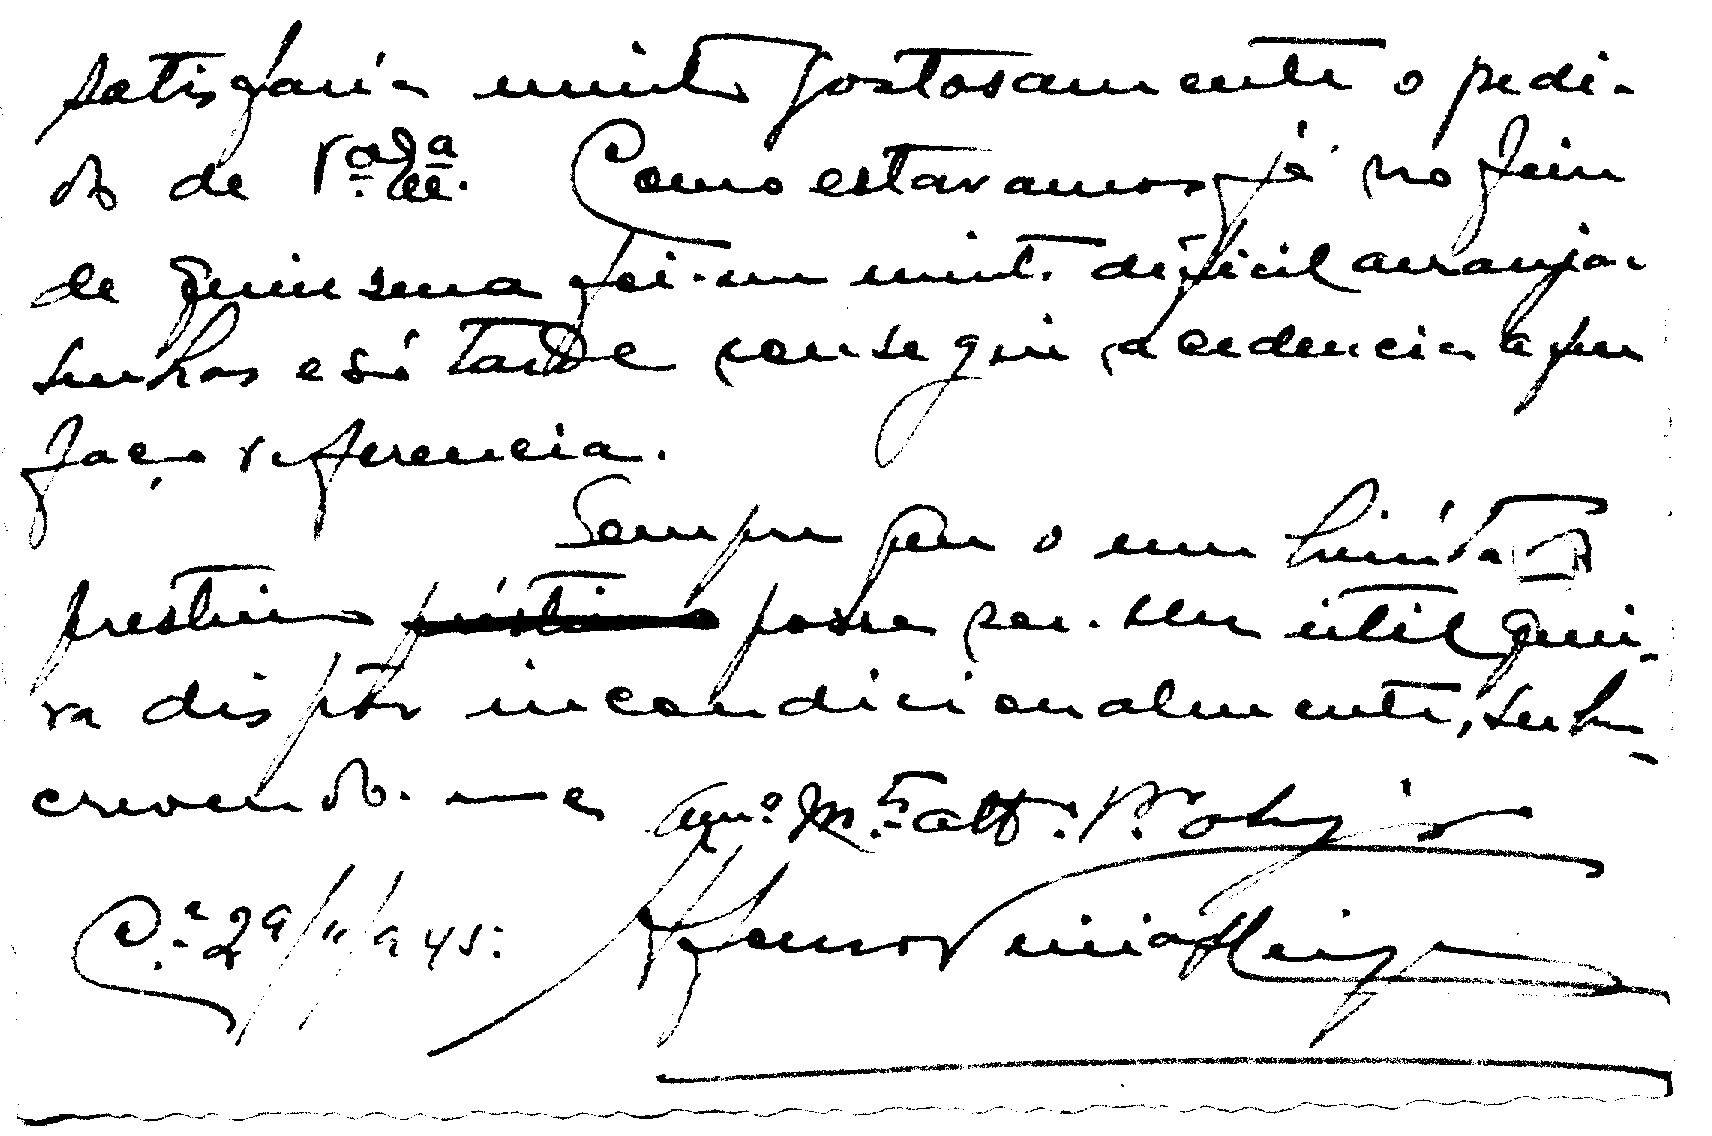 satisfaria muito gostosamente o pedi-
do de V.ª Ex.ª. Como estavamos já no fim
de quinsena foi-me muit. dificil arranjar
senhas e só tarde consegui a cedencia a que
faço referencia.
Sempre que o meu limitado
prestimo prestimo possa ser-lhe util quei-
ra dispôr incondicionalmente, subs-
crevendo-me Am.º M.to att.º V.or Obrig.º
C.ª 29/11/945.